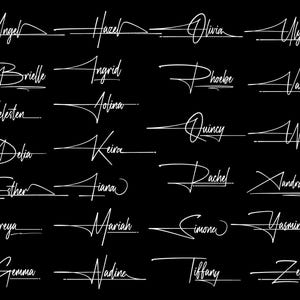 Angel
Hazel
Olivia
Brielle
Ingrid
Phoebe
Celesten
Jolina
Quincy
Delia
Keira
Esther
Tiana
Rachel
Xandra
Freya
Mariah
Simone
Yasmin
Gemma
Nadine
Tiffany